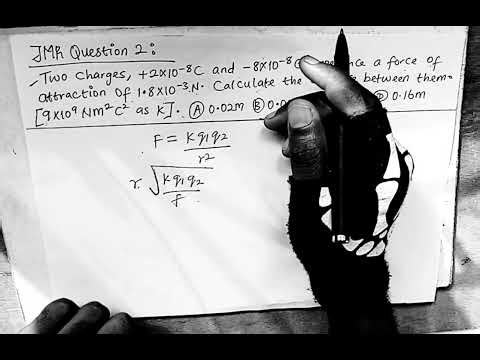 JMB Question 2:
Two Charges, +2×10⁻⁸C and -8×10⁻⁸C a force of
attraction of 1.8×10⁻³N. Calculate the between them.
[9×10⁹ Nm²C² as K]. Ⓐ 0.02m Ⓑ Ⓓ 0.16m
F = Kq₁q₂
r²
r √ Kq₁q₂
F